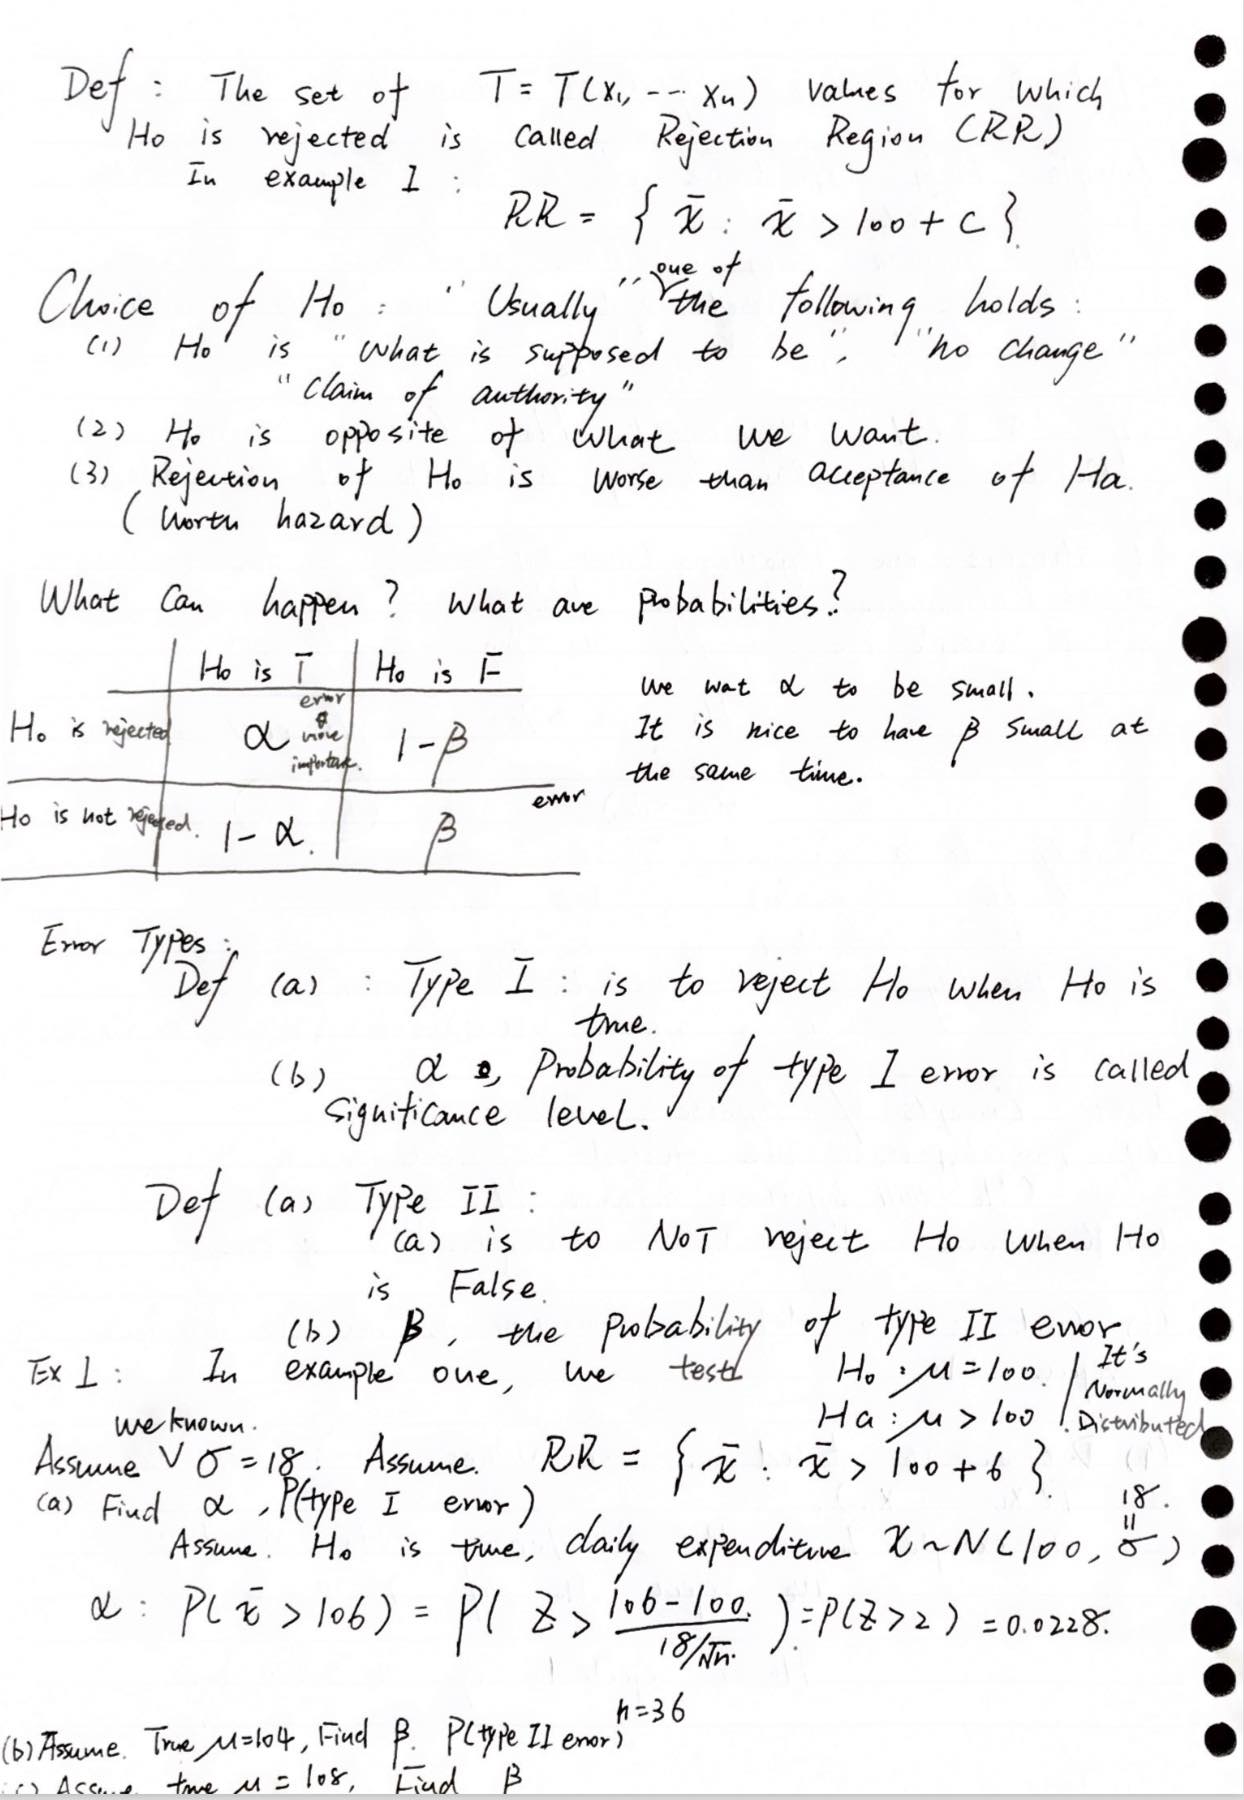 Def : The set of T = T(x₁, --- xₙ) values for which
Ho is rejected is called Rejection Region (RR)
In example 1 :
RR = { x̄ : x̄ > 100 + c }
one of
Choice of Ho : "Usually" the following holds :
(1) Ho is "what is supposed to be", "no change"
"claim of authority"
(2) Ho is opposite of what we want.
(3) Rejection of Ho is worse than acceptance of Ha.
( worth hazard )
What can happen? What are probabilities?
Ho is T Ho is F
Ho is rejected α error more important. 1-β
Ho is not rejected. 1-α. β error
We wat α to be small.
It is nice to have β small at
the same time.
Error Types :
Def (a) : Type I : is to reject Ho when Ho is
true.
(b) α , Probability of type I error is called
significance level.
Def (a) Type II :
(a) is to NOT reject Ho when Ho
is False.
(b) β, the probability of type II error
Ex 1 : In example one, we test Ho : μ = 100.
Ha : μ > 100
It's
Normally
Distributed
we known.
Assume ∨ σ = 18. Assume. RR = { x̄ : x̄ > 100 + 6 }.
(a) Find α, P(type I error)
18.
"
Assume. Ho is true, daily expenditure x ~ N(100, σ)
α : P(x̄ > 106) = P( Z > 106-100. / 18/√n. ) = P(Z > 2) = 0.0228.
n=36
(b) Assume. True μ=104, Find β. P(type II error)
(c) Assume true μ = 108, Find β